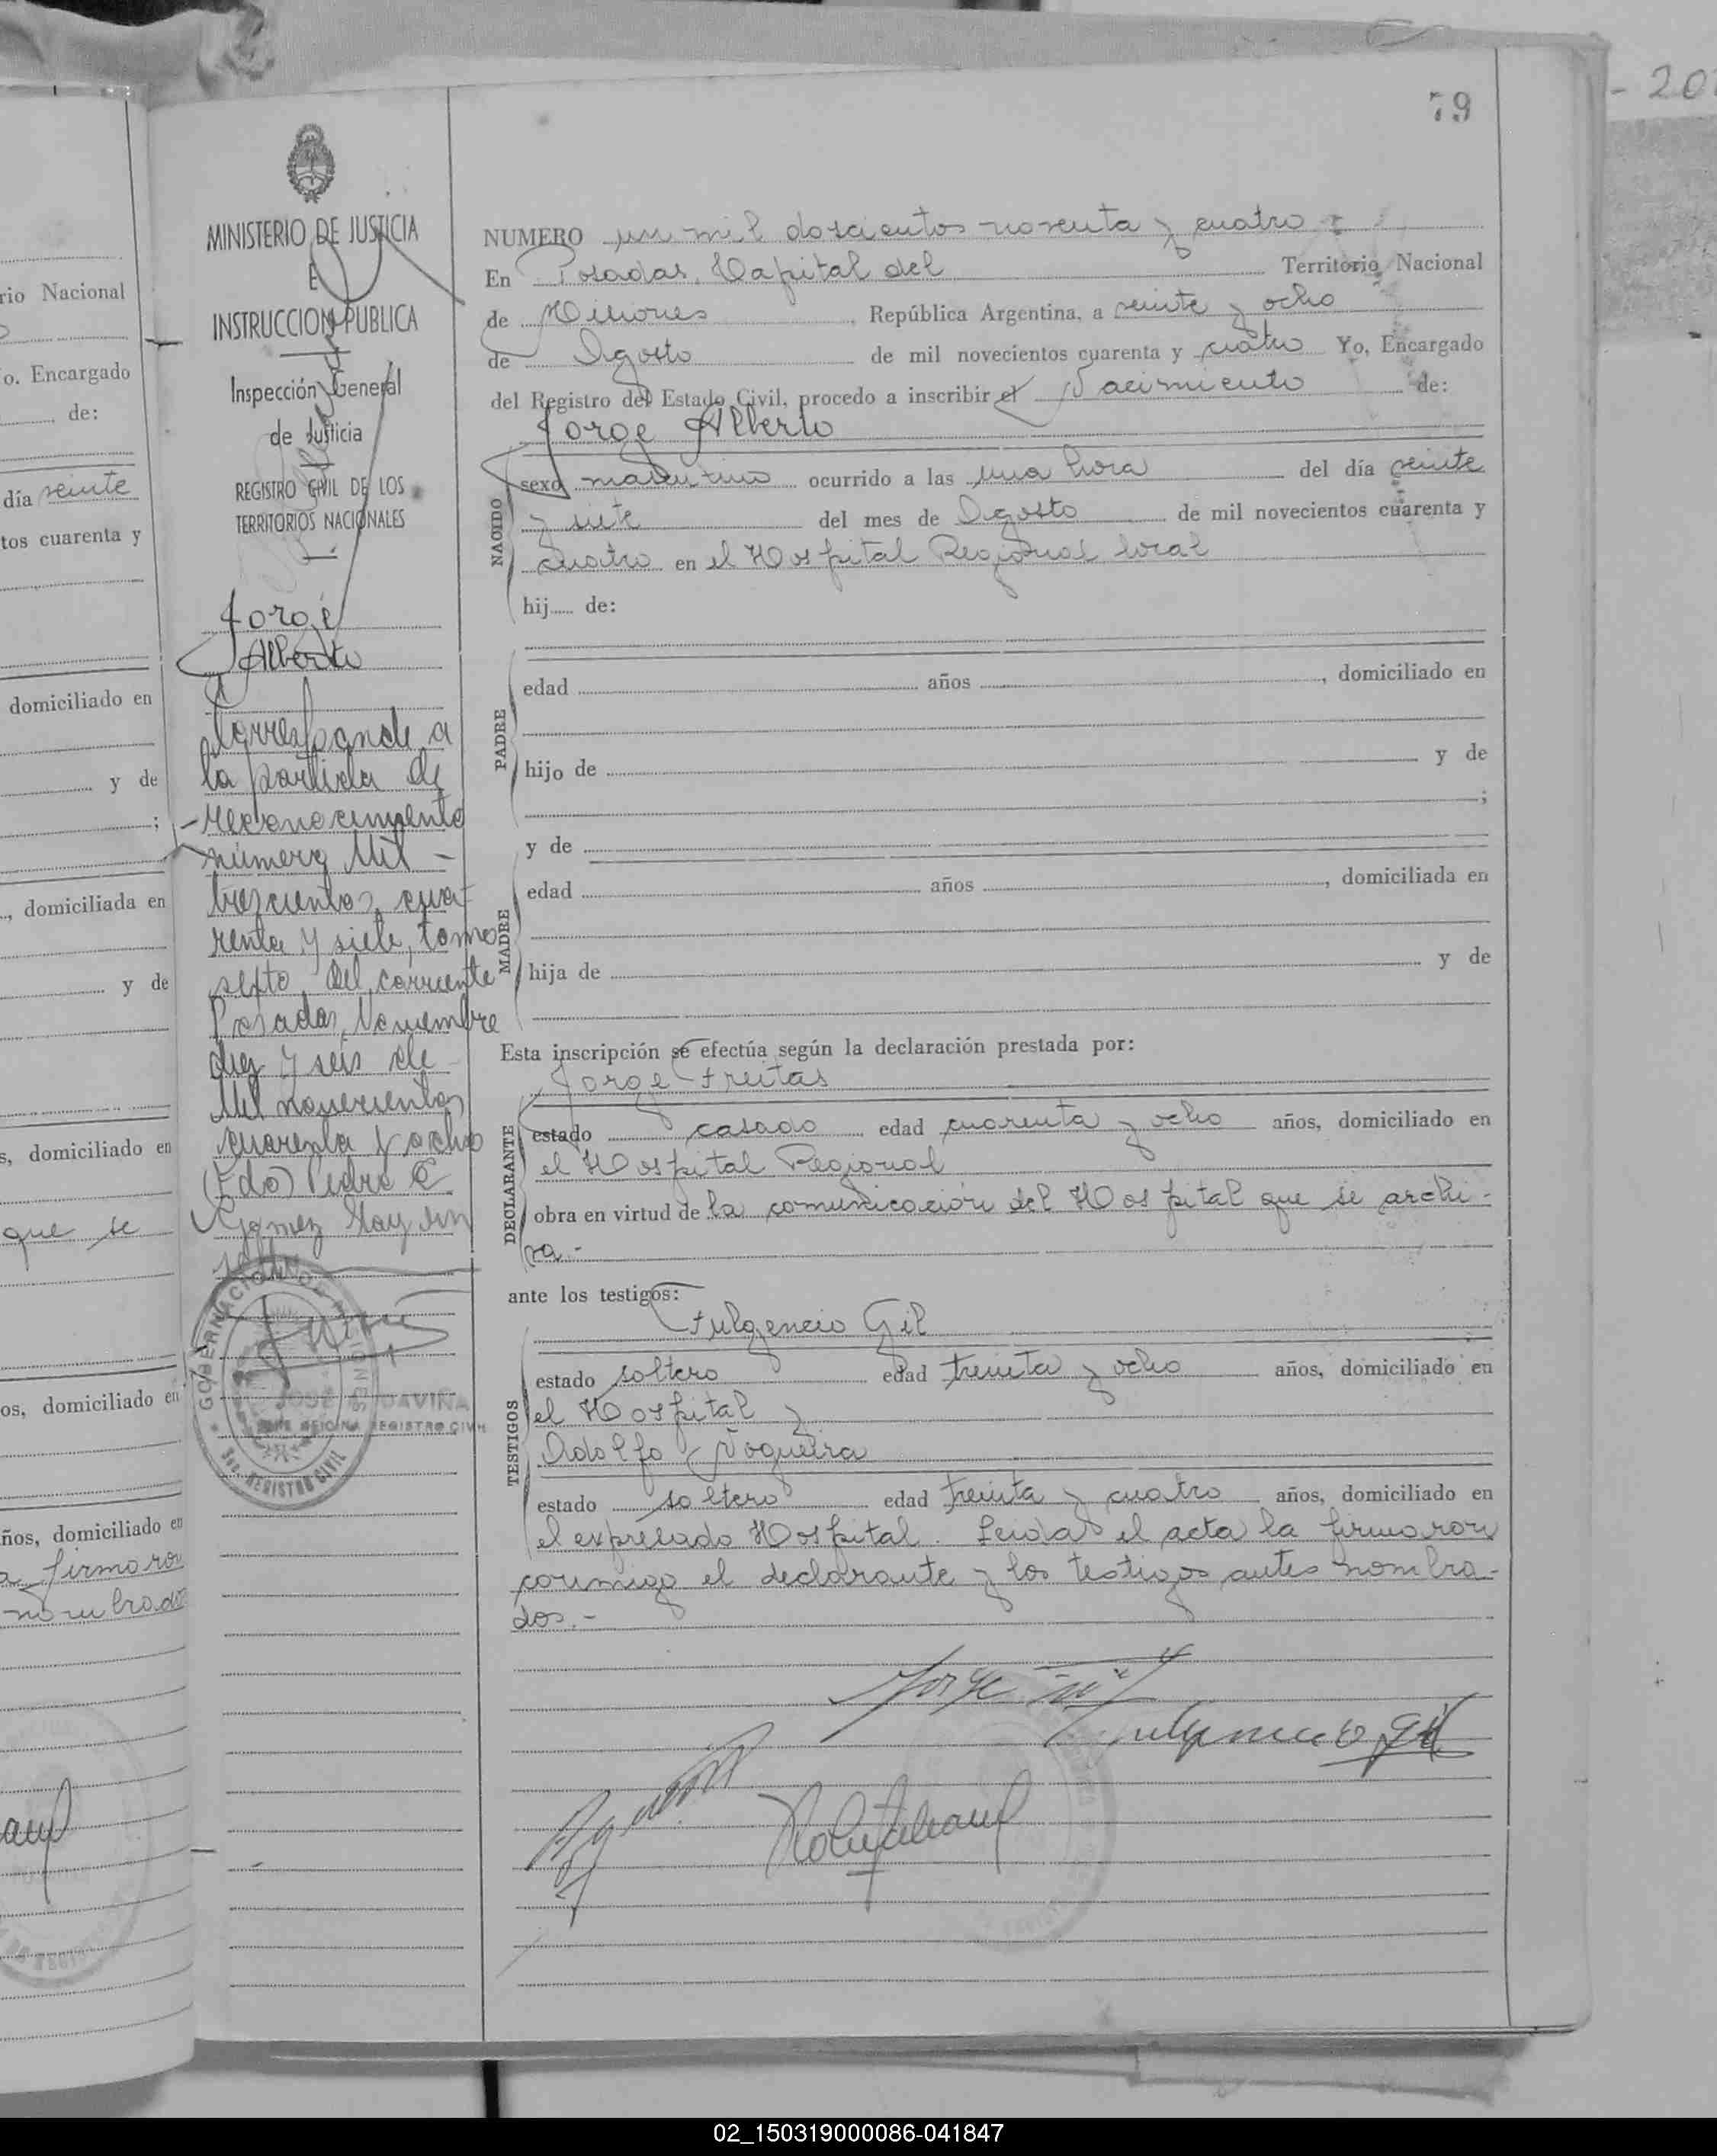 79
- 20
MINISTERIO DE JUSTICIA
E
INSTRUCCION PUBLICA
Inspección General
de Justicia
REGISTRO CIVIL DE LOS
TERRITORIOS NACIONALES
Jorge
Alberto
Corresponde a
la partida de
reconocimiento
número Mil
trezcientos cua-
renta y siete, tomo
septo del corriente
Posadas, Noviembre
diez y seis de
Mil novecientos
cuarenta y ocho
(Fdo) Pedro C
Gomez
GOBERNACION DE MISIONES
REGISTRO CIVIL
JOSE DAVIÑA
JEFE OFICINA REGISTRO CIVIL
NUMERO un mil doscientos noventa y cuatro
En Posadas, Capital del Territorio Nacional
de Misiones República Argentina, a veinte y ocho
de Agosto de mil novecientos cuarenta y cuatro Yo, Encargado
del Registro del Estado Civil, procedo a inscribir el Nacimiento de:
Jorge Alberto
NACIDO
sexo masculino ocurrido a las una hora del día veinte
y siete del mes de Agosto de mil novecientos cuarenta y
cuatro en el Hospital Regional local
hij de:
PADRE
edad años , domiciliado en
hijo de y de
;
y de
MADRE
edad años , domiciliada en
hija de y de
Esta inscripción se efectúa según la declaración prestada por:
Jorge Freitas
DECLARANTE
estado casado edad cuarenta y ocho años, domiciliado en
el Hospital Regional
obra en virtud de la comunicación del Hospital que se archi-
va.-
ante los testigos:
Fulgencio Gil
TESTIGOS
estado soltero edad treinta y ocho años, domiciliado en
el Hospital y
Adolfo Nogueira
estado soltero edad treinta y cuatro años, domiciliado en
el expresado Hospital. Leida el acta la firmaron
conmigo el declarante y los testigos antes nombra-
dos.-
Jorge
Fulgencio Gil
rio Nacional
o. Encargado
de:
día veinte
tos cuarenta y
domiciliado en
y de
;
., domiciliada en
y de
s, domiciliado en
que se
os, domiciliado en
ños, domiciliado en
a firmaron
nombrados
02_150319000086-041847